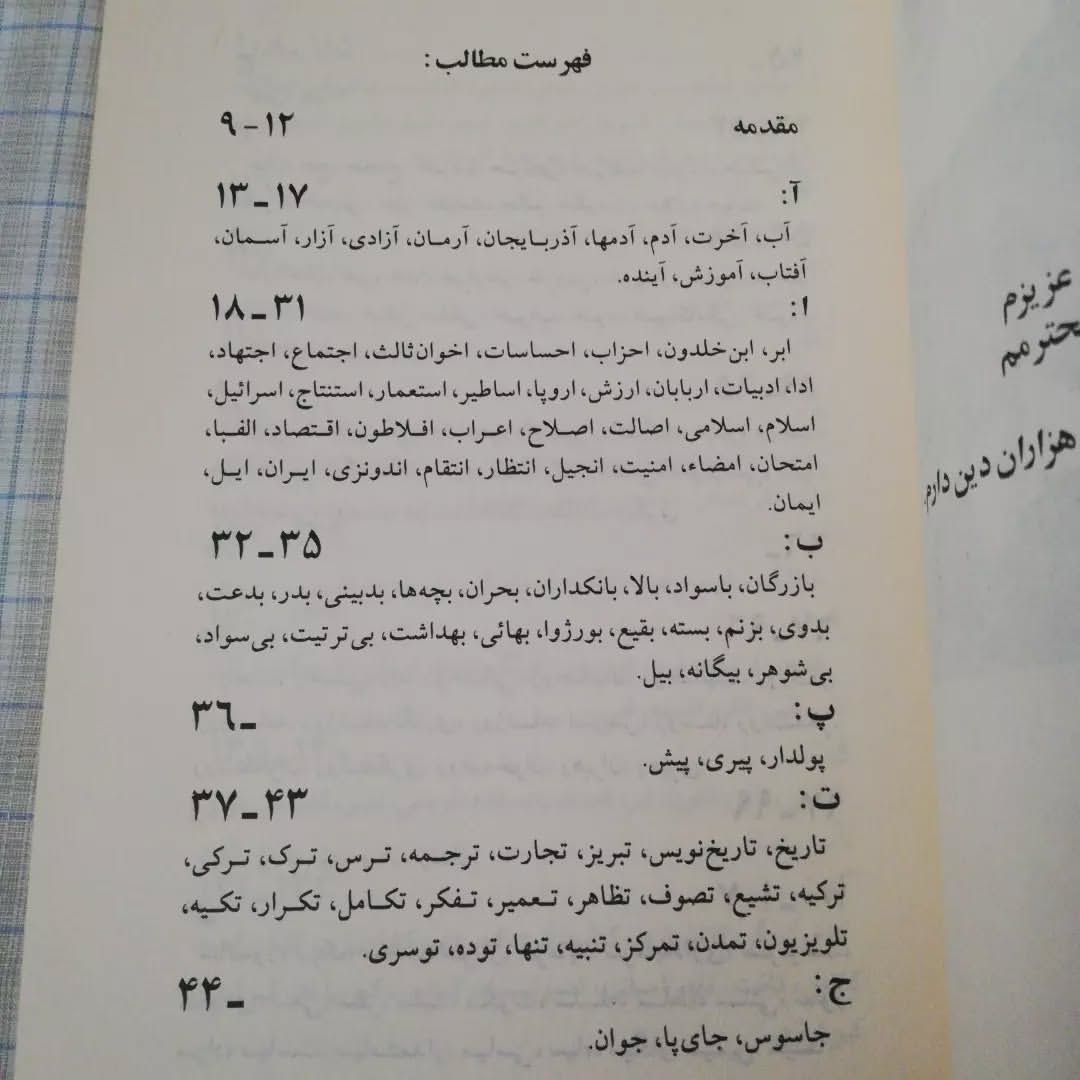 فهرست مطالب:
مقدمه ۹-۱۲
آ: ۱۳ـ۱۷
آب، آخرت، آدم، آدمها، آذربایجان، آرمان، آزادی، آزار، آسمان،
آفتاب، آموزش، آینده.
ا: ۱۸ـ۳۱
ابر، ابن‌خلدون، احزاب، احساسات، اخوان‌ثالث، اجتماع، اجتهاد،
ادا، ادبیات، اربابان، ارزش، اروپا، اساطیر، استعمار، استنتاج، اسرائیل،
اسلام، اسلامی، اصالت، اصلاح، اعراب، افلاطون، اقتصاد، الفبا،
امتحان، امضاء، امنیت، انجیل، انتظار، انتقام، اندونزی، ایران، ایل،
ایمان.
ب: ۳۲ـ۳۵
بازرگان، باسواد، بالا، بانکداران، بحران، بچه‌ها، بدبینی، بدر، بدعت،
بدوی، بزنم، بسته، بقیع، بورژوا، بهائی، بهداشت، بی‌ترتیت، بی‌سواد،
بی‌شوهر، بیگانه، بیل.
پ: ۳۶ـ
پولدار، پیری، پیش.
ت: ۳۷ـ۴۳
تاریخ، تاریخ‌نویس، تبریز، تجارت، ترجمه، ترس، ترک، ترکی،
ترکیه، تشیع، تصوف، تظاهر، تعمیر، تفکر، تکامل، تکرار، تکیه،
تلویزیون، تمدن، تمرکز، تنبیه، تنها، توده، توسری.
ج: ۴۴ـ
جاسوس، جای‌پا، جوان.
عزیزم
هزاران دین دارم.